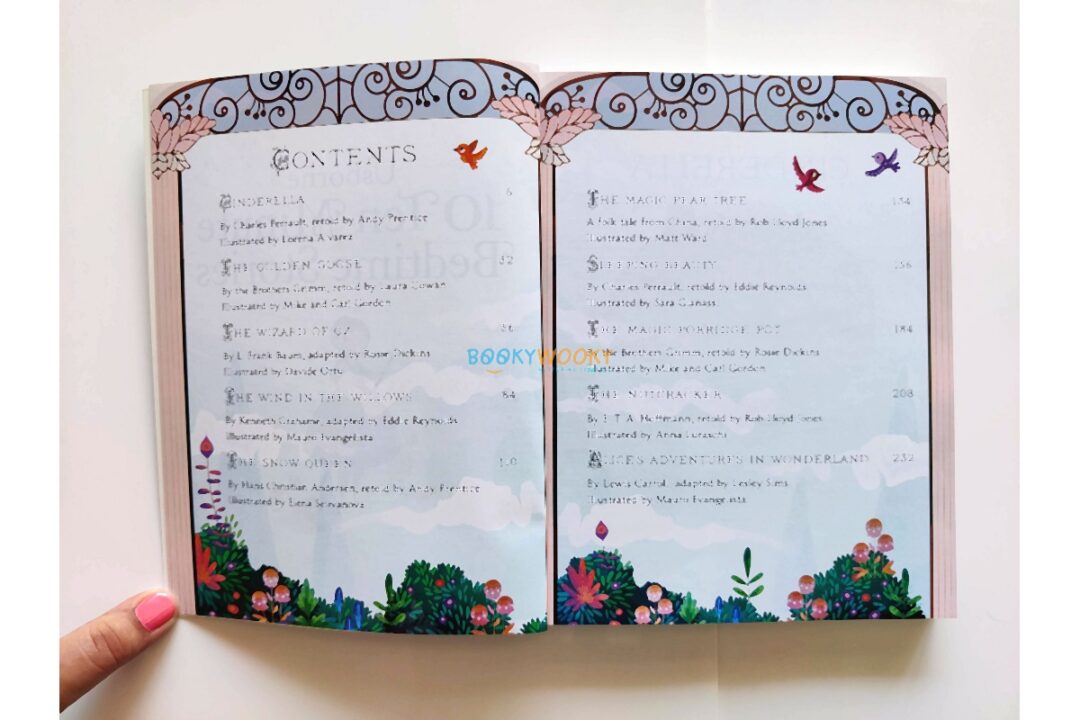 CONTENTS
CINDERELLA 6
By Charles Perrault, retold by Andy Prentice
Illustrated by Lorena Alvarez
THE GOLDEN GOOSE 32
By the Brothers Grimm, retold by Laura Cowan
Illustrated by Mike and Carl Gordon
THE WIZARD OF OZ 56
By L. Frank Baum, adapted by Rosie Dickins
Illustrated by Davide Ortu
THE WIND IN THE WILLOWS 84
By Kenneth Grahame, adapted by Eddie Reynolds
Illustrated by Mauro Evangelista
THE SNOW QUEEN 110
By Hans Christian Andersen, retold by Andy Prentice
Illustrated by Elena Selivanova
THE MAGIC PEAR TREE 134
A folk tale from China, retold by Rob Lloyd Jones
Illustrated by Matt Ward
SLEEPING BEAUTY 156
By Charles Perrault, retold by Eddie Reynolds
Illustrated by Sara Gianassi
THE MAGIC PORRIDGE POT 184
By the Brothers Grimm, retold by Rosie Dickins
Illustrated by Mike and Carl Gordon
THE NUTCRACKER 208
By E. T. A. Hoffmann, retold by Rob Lloyd Jones
Illustrated by Anna Luraschi
ALICE'S ADVENTURES IN WONDERLAND 232
By Lewis Carroll, adapted by Lesley Sims
Illustrated by Mauro Evangelista
BOOKYWOOKY